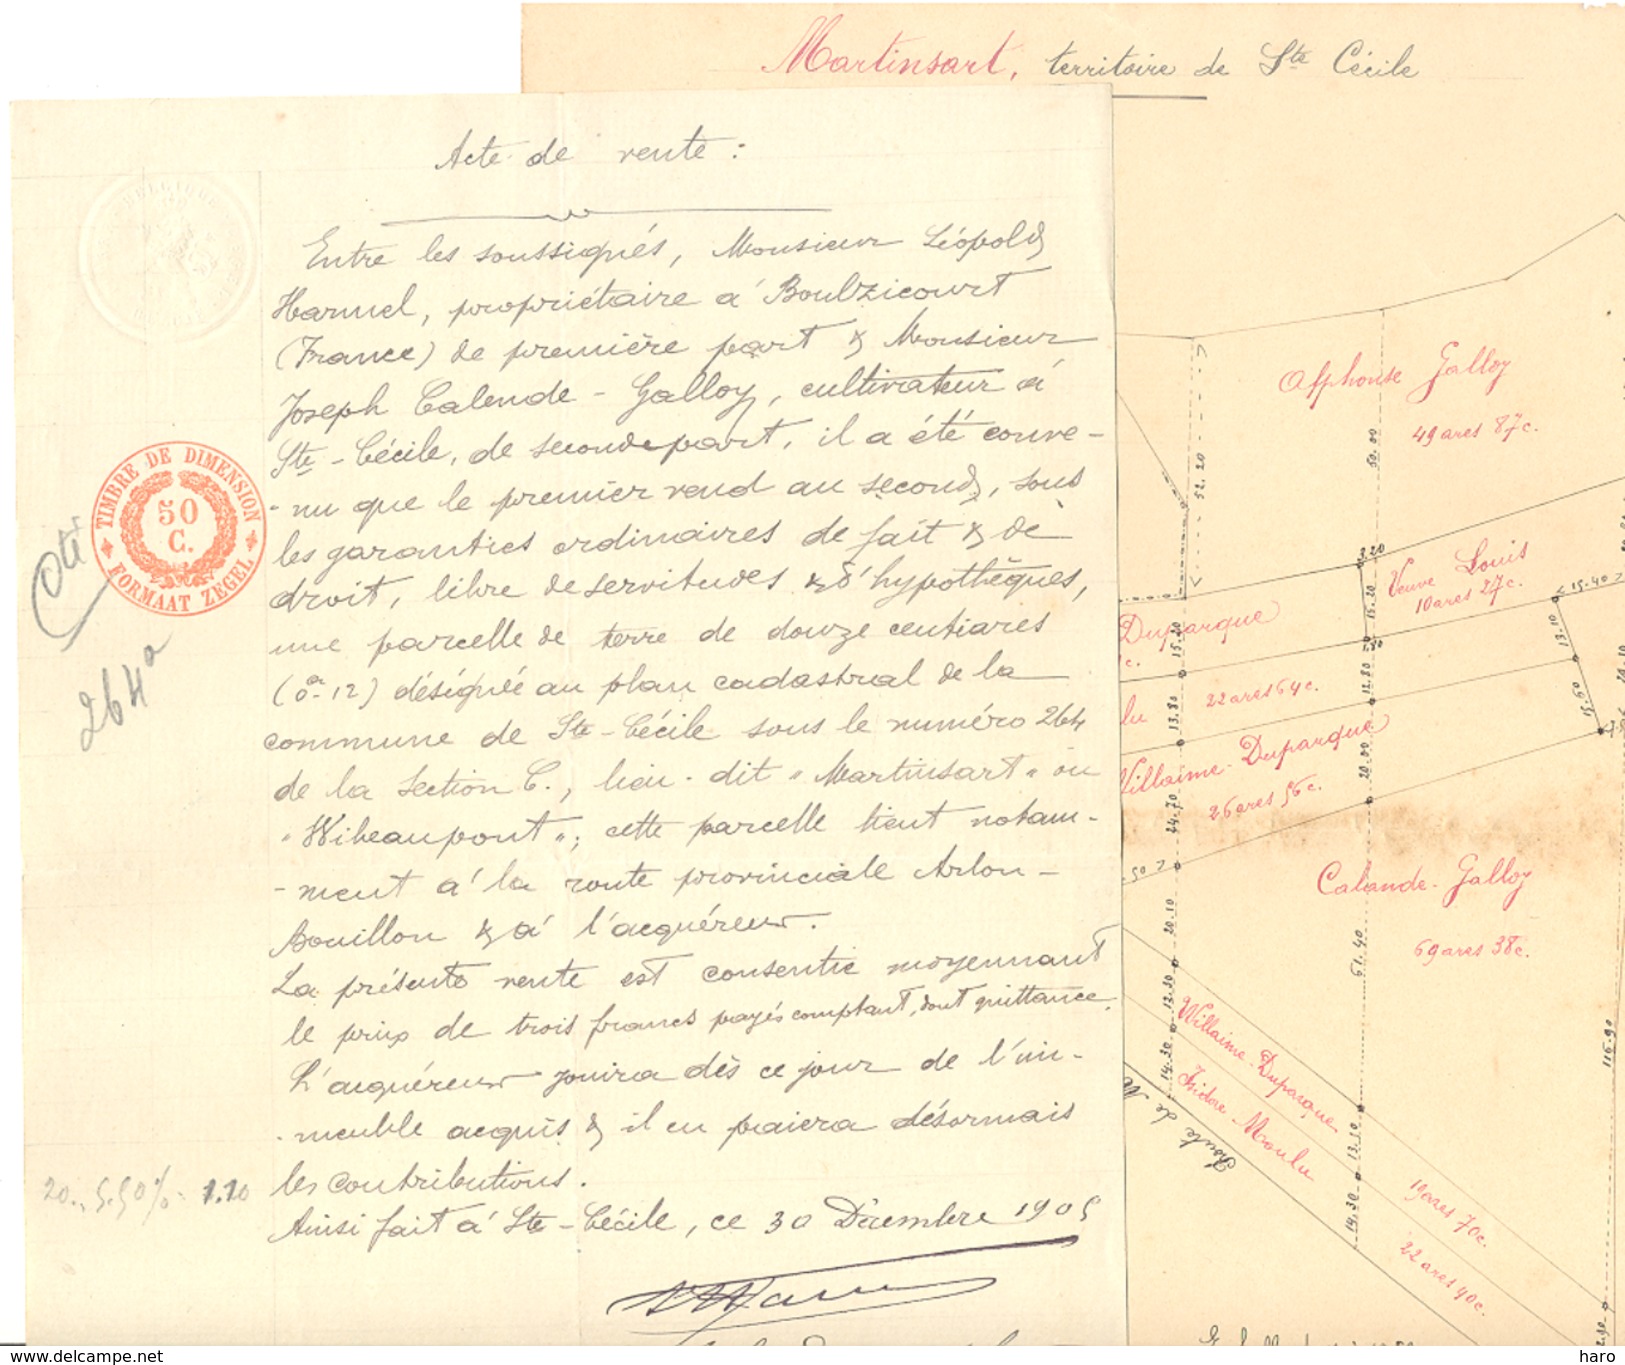 Martinsart, territoire de Ste Cécile
Acte de vente :
Entre les soussignés, Monsieur Léopold
Harmel, propriétaire à Boulzicourt
(France) de première part & Monsieur
Joseph Calende - Galloy, cultivateur à
Ste - Cécile, de seconde part, il a été conve-
- nu que le premier vend au second, sous
les garanties ordinaires de fait & de
droit, libre de servitudes & d'hypothèques,
une parcelle de terre de douze centiares
(0a 12) désignée au plan cadastral de la
commune de Ste - Cécile sous le numéro 264
de la Section C., lieu - dit "Martinsart" ou
"Wibeaupont"; cette parcelle tient notam-
- ment à la route provinciale Arlon -
Bouillon & à l'acquéreur.
La présente vente est consentie moyennant
le prix de trois francs payés comptant, dont quittance.
L'acquéreur jouira dès ce jour de l'im-
- meuble acquis & il en paiera désormais
les contributions.
Ainsi fait à Ste - Cécile, ce 30 Décembre 1905
TIMBRE DE DIMENSION
50
C.
FORMAAT ZEGEL
264a
20., 5.50% = 1.10
Alphonse Galloy
49 ares 87c.
50.00
52.20
3.20
Veuve Louis
10 ares 27c.
15.40
13.10
15.60
Duparque
c.
15.20
15.20
lu
22 ares 64c.
13.80
12.80
Villaime - Duparque
26 ares 56c.
24.70
20.00
50
Calande - Galloy
69 ares 38c.
20.10
61.40
116.90
Willaime - Duparque
19 ares 70c.
Isidore - Moulu
22 ares 90c.
12.30
14.30
13.10
14.30
Route de M
haro
www.delcampe.net